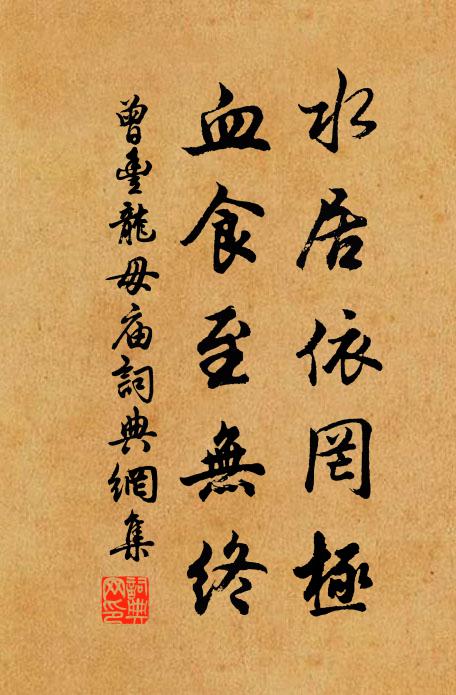 水居依罔極
血食至無終
曾豐龍母庙詞典網集
詞典網印